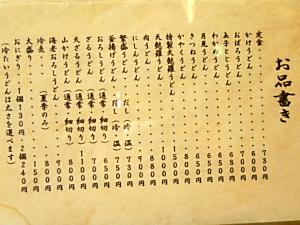 お品書き
定食 730円
かけうどん 600円
おぼろうどん 700円
玉子とじうどん 680円
わかめうどん 680円
月見うどん 650円
きつねうどん 700円
かやくうどん
天麩羅うどん
特製天麩羅うどん 1500円
肉うどん 800円
にしんうどん 900円
繁盛うどん
釜揚げうどん (だし 冷 温) 750円
おろしうどん (通常 細切り) 650円
ざるうどん (通常 細切り) 700円
天ざるうどん (通常 細切り) 1100円
山かけうどん 900円
海老おろしうどん 900円
冷煮 (夏季のみ) 800円
大盛り 150円
おにぎり 1個130円 2個240円
(冷たいうどんは太さを選べます)